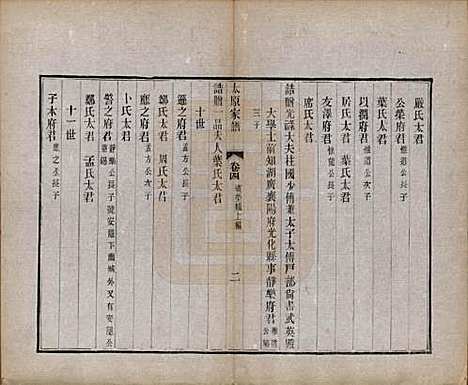 嚴氏太君
公榮府君 維道公長子
葉氏太君
以潤府君 維道公
居氏太君 葉氏太君
友澤府君 維 公長子
席氏太君
誥贈光祿大夫柱國少傅兼太子太傅戶部尚書武英殿
大學士前知湖廣襄陽府光化縣事靜樂府君 惟道公
三子
太原家譜 卷四 上編 二
誥贈 品夫人葉氏太君
十世
遜之府君 孟方公長子
鄭氏太君 周氏太君
應之府君 孟方公次子
卜氏太君
磐之府君 靜樂公長子號安隱下幽城外又有安隱公
鄭氏太君 孟氏太君
十一世
子木府君 應之公長子